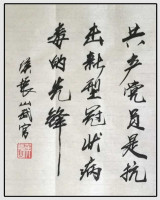 共产党员是抗
击新型冠状病
毒的先锋
山武宫